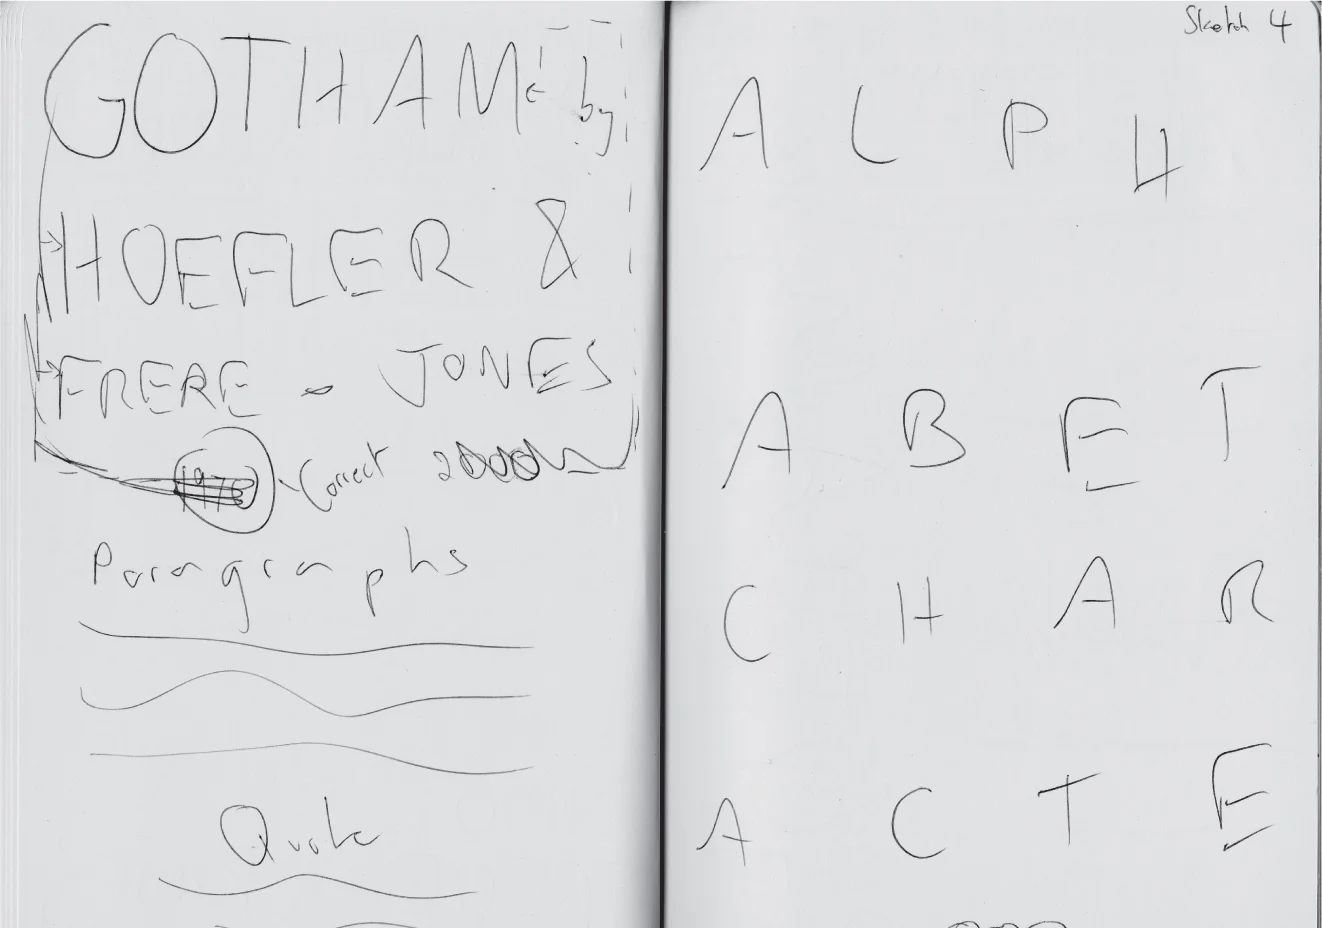 GOTHAM by
HOEFLER &
FRERE - JONES
Correct 2000
Paragraphs
Quote
Sketch 4
A L P H
A B E T
C H A R
A C T E